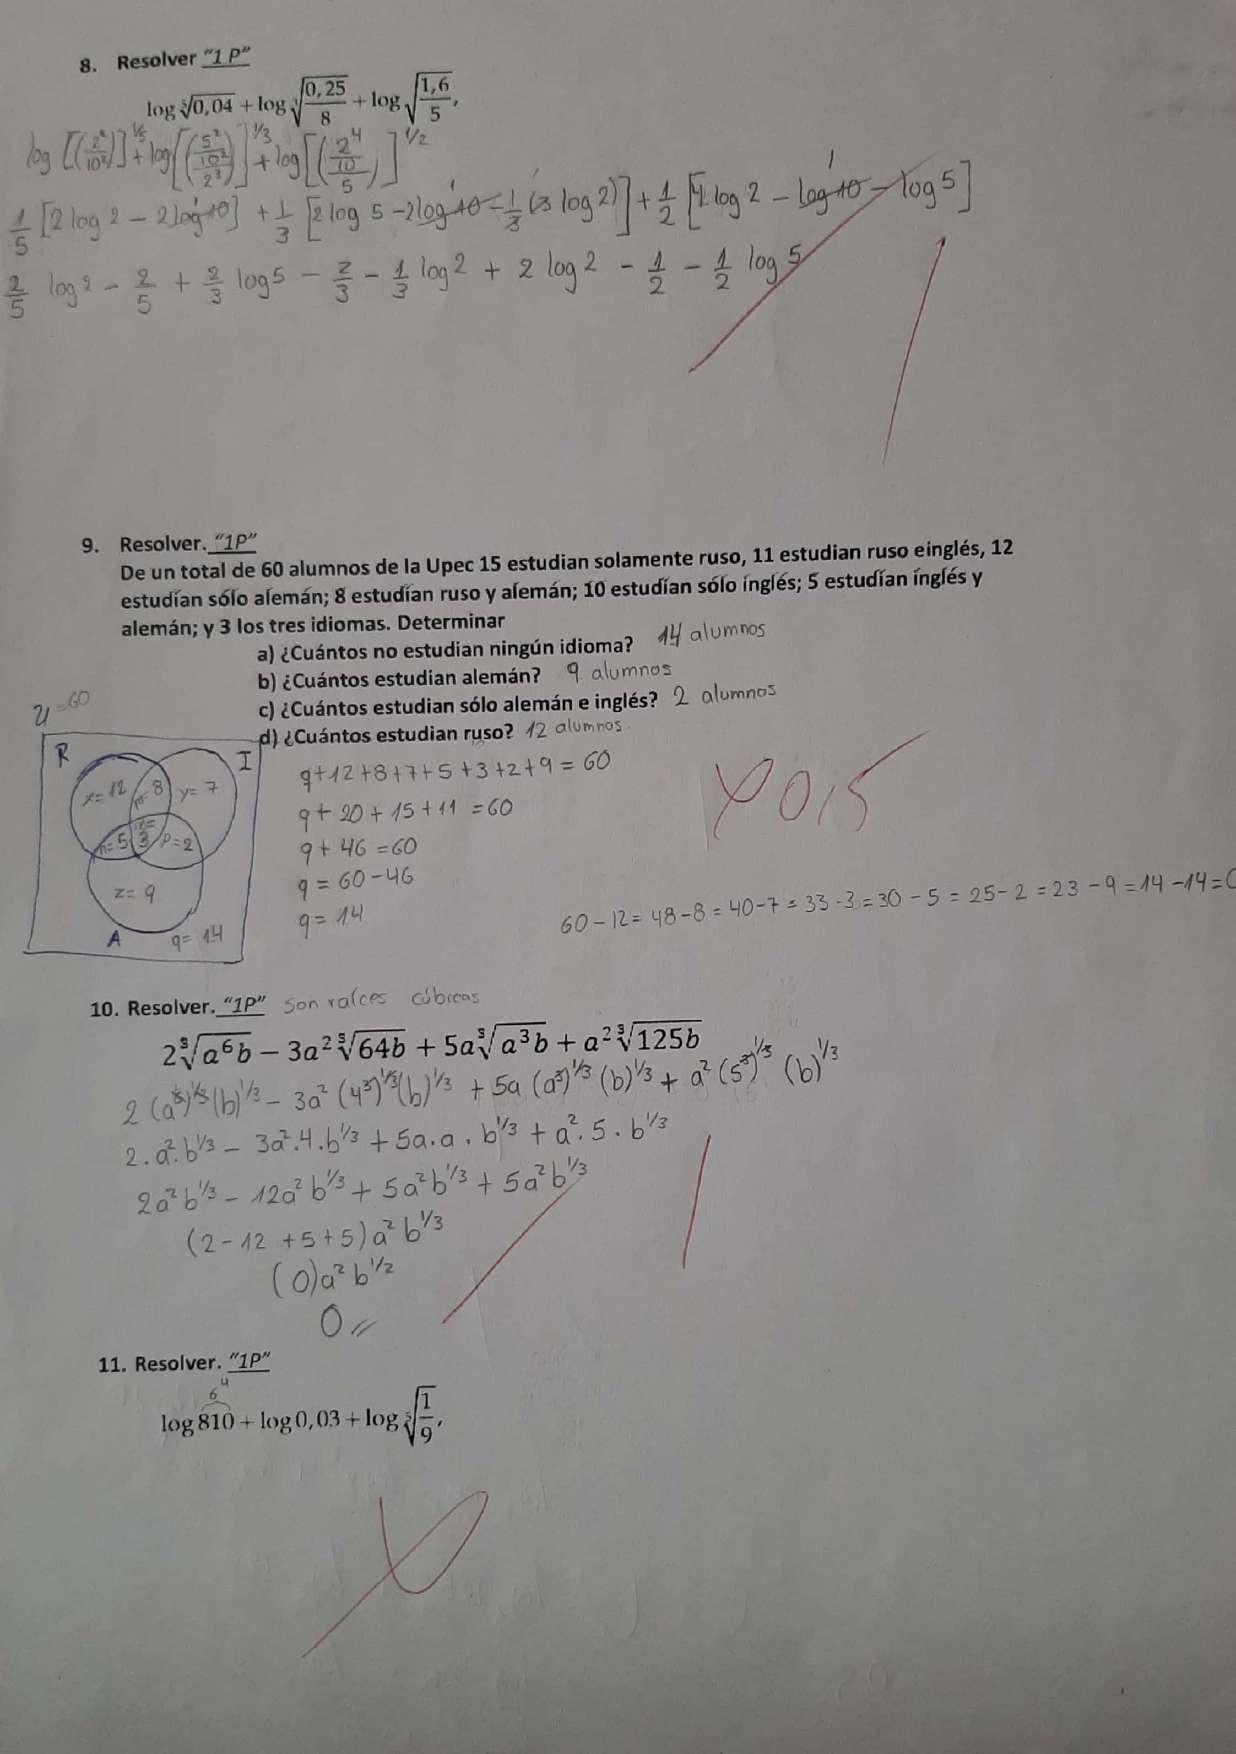 8. Resolver "1 P"
log ⁵√0,04 + log ³√(0,25/8) + log √(1,6/5),
log [(2²/10²)]^1/5 + log [((5²/10²)/2³)]^1/3 + log [((2⁴/10)/5)]^1/2
1/5 [2 log 2 - 2 log 10] + 1/3 [2 log 5 - 2 log 10 - 1/3 (3 log 2)] + 1/2 [4 log 2 - log 10 - log 5]
2/5 log 2 - 2/5 + 2/3 log 5 - 2/3 - 1/3 log 2 + 2 log 2 - 1/2 - 1/2 log 5
9. Resolver. "1P"
De un total de 60 alumnos de la Upec 15 estudian solamente ruso, 11 estudian ruso einglés, 12
estudían sólo alemán; 8 estudían ruso y alemán; 10 estudían sólo inglés; 5 estudían inglés y
alemán; y 3 los tres idiomas. Determinar
a) ¿Cuántos no estudian ningún idioma? 14 alumnos
b) ¿Cuántos estudian alemán? 9 alumnos
c) ¿Cuántos estudian sólo alemán e inglés? 2 alumnos
d) ¿Cuántos estudian ruso? 12 alumnos.
U=60
R I
x=12 m=8 y=7
n=5 3 p=2
z=9
A q=14
q+12+8+7+5+3+2+9=60
q+20+15+11=60
q+46=60
q=60-46
q=14
0,5
60-12=48-8=40-7=33-3=30-5=25-2=23-9=14-14=0
10. Resolver. "1P" Son raíces cúbicas
2³√(a⁶b) - 3a² ³√(64b) + 5a ³√(a³b) + a² ³√(125b)
2(a⁶)^1/3 (b)^1/3 - 3a² (4³)^1/3 (b)^1/3 + 5a (a³)^1/3 (b)^1/3 + a² (5³)^1/3 (b)^1/3
2.a².b^1/3 - 3a².4.b^1/3 + 5a.a.b^1/3 + a².5.b^1/3
2a²b^1/3 - 12a²b^1/3 + 5a²b^1/3 + 5a²b^1/3
(2-12+5+5)a²b^1/3
(0)a²b^1/2
0
11. Resolver. "1P"
6⁴
log 810 + log 0,03 + log ⁵√(1/9),